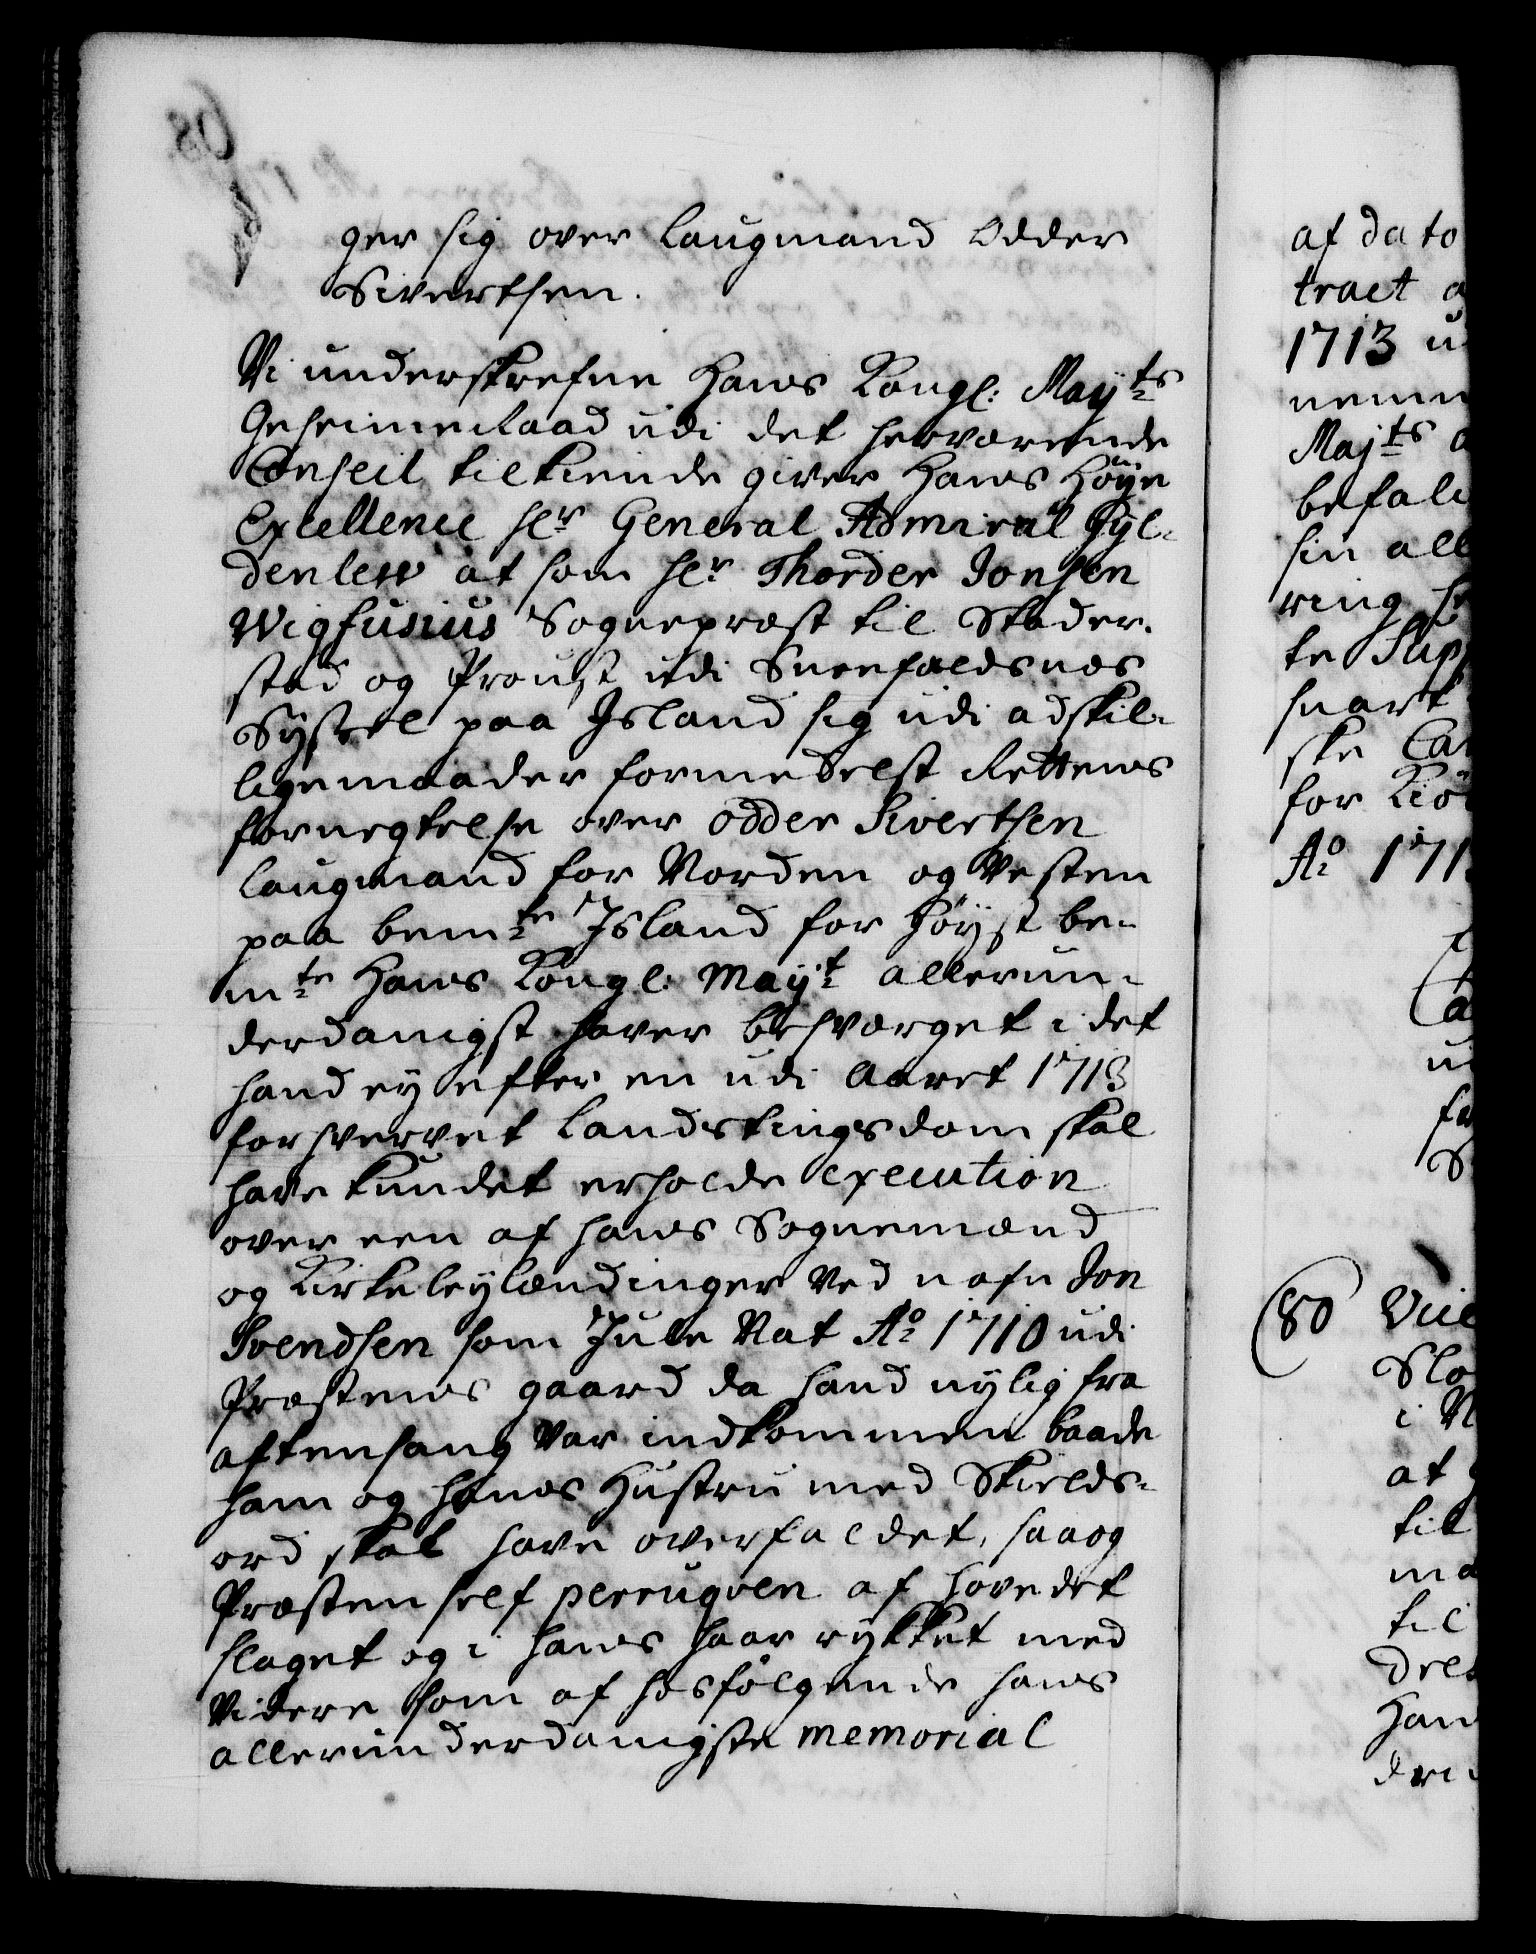 ger sig over Laugmand Odder
Sivertsen.
Vi underskrefne Hans Kongl: Mayts
Geheimeraad udi det herværende
Conseil tilkiende giver Hans Høye
Excellence Hr General Admiral Gyl-
denlew at som Hr Thorder Jonsen
Wigfusius Sognepræst til Stader-
stad og Proust udi Sneefieldsnæs
Syssel paa Island sig udi adskil-
ligemaader formedelst Rettens
fornegtelse over Odder Sivertsen
Laugmand for Norden og Vesten
paa bemte Island for Høyst be-
mte Hans Kongl: Mayt allerun-
derdanigst haver besværget i det
hand ey efter en udi Aaret 1713
forhvervet Landstingsdom skal
have kundet erholde execution
over een af hans Sognemænd
og Kirkeleylændinger ved nafn Jon
Svendsen som Jule Nat Ao 1710 udi
Præstens gaard da hand nylig fra
aftensang var indkommen baade
ham og hans Hustru med Skields-
ord skal have overfaldet, saa og
Præsten self perruqven af hovedet
slaget og i hans haar rykket med
Videre som af hosfølgende hans
allerunderdanigste memorial
af dato
tract
1713
Majts
befale
sin all
ring
te Sup
snart
ske
for Kiø
Ao 171
80
Slo
i N
at
til
til